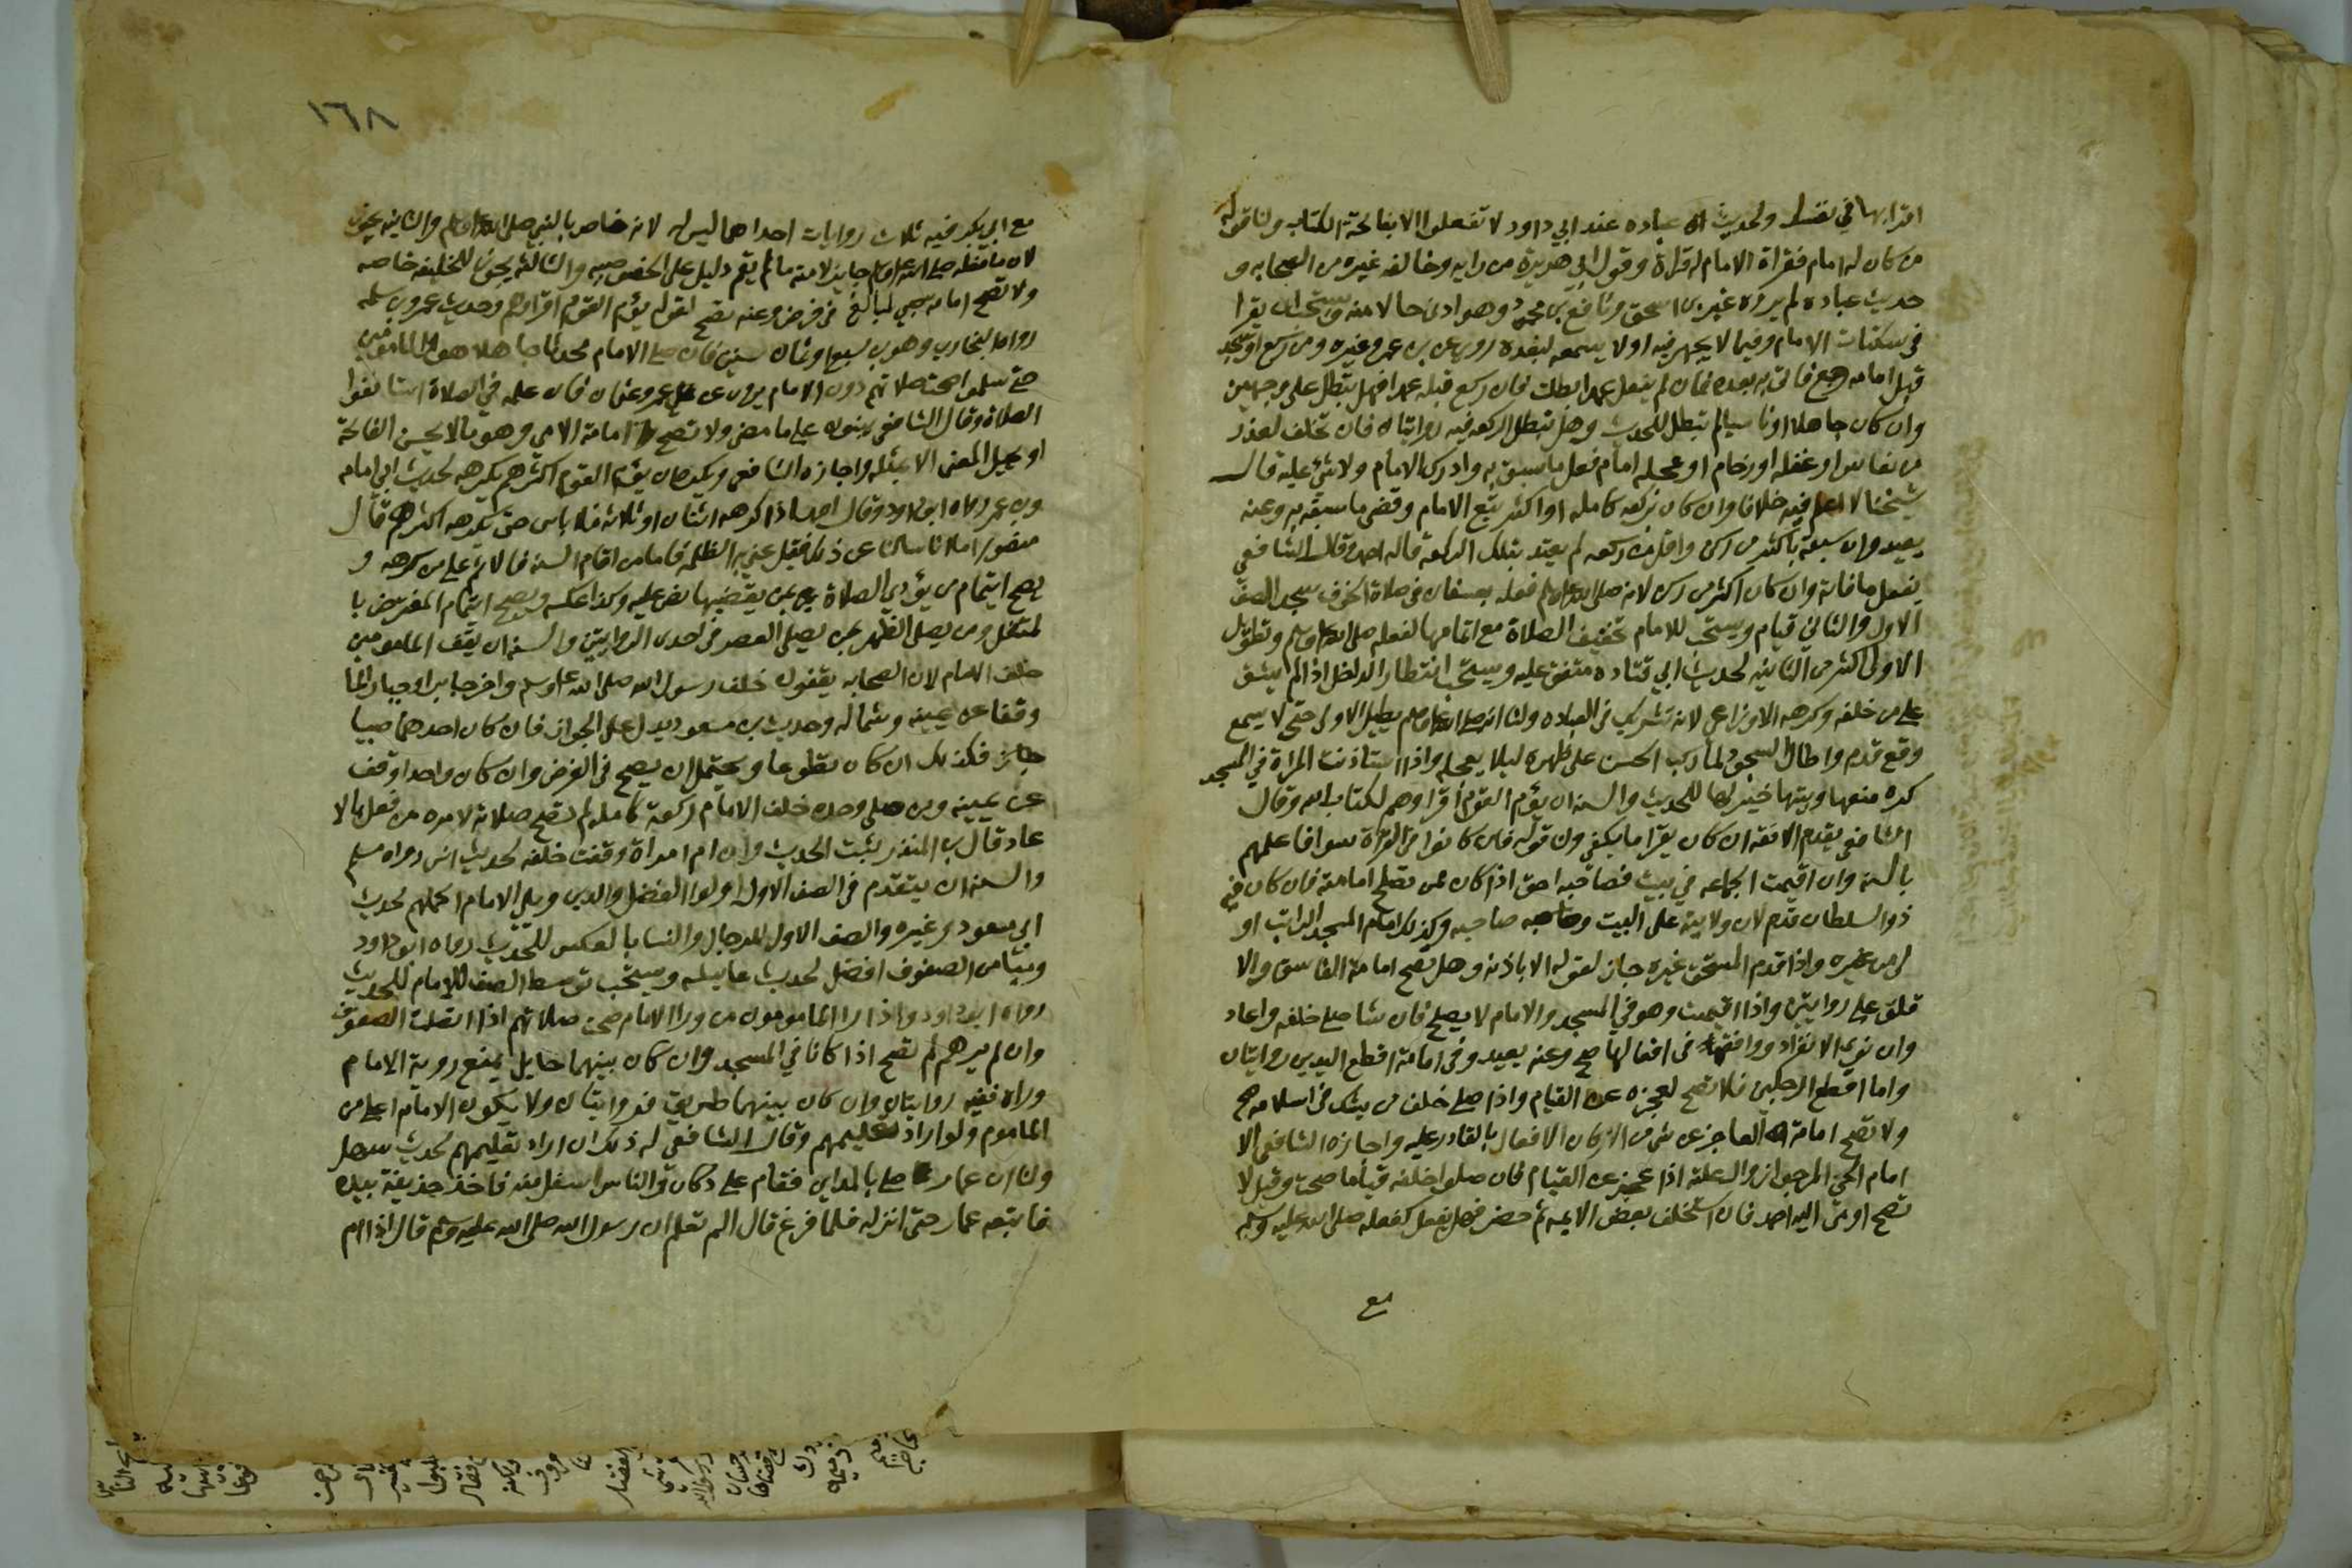 اقرا بها في نفسك ولحديث عباده عند ابي داود لا تفعلوا الا بفاتحة الكتاب ولنا قوله
من كان له امام فقراة الامام له قراة وقول ابي هريرة من رايه وخالفه غيره من الصحابه و
حديث عباده لم يروه غير بن اسحق ونافع بن محمود وهو ادنى حالا منه ويستحب ان يقرا
في سكتات الامام وفيما لا يجهر فيه او لا يسمعه لبعده روي عن بن عمر وغيره ومن ركع او سجد
قبل امامه رجع فاتى به بعده فان لم يفعل عمدا بطلت فان ركع قبله عمدا فهل تبطل على وجهين
وان كان جاهلا او ناسيا لم تبطل للحديث وهل تبطل الركعه فيه روايتان فان تخلف لعذر
من نعاس او غفله او زحام او عجلة امام فعل ما سبق به وادرك الامام ولا شيء عليه قال
شيخنا لا اعلم فيه خلافا وان كان بركعه كامله او اكثر يتبع الامام وقضى ما سبقه به وعنه
يعيد وان سبقه باكثر من ركن واقل من ركعه لم يعتد بتلك الركعة قاله احمد وقال الشافعي
يفعل ما فاته وان كان اكثر من ركن لانه صلى الله عليه وسلم فعله بعسفان في صلاة الخوف سجد الصف
الاول والثاني قيام ويستحب للامام تخفيف الصلاة مع اتمامها لفعله صلى الله عليه وسلم وتطويل
الاولى اكثر من الثانيه لحديث ابي قتاده متفق عليه ويستحب انتظار الداخل اذا لم يشق
على من خلفه وكرهه الاوزاعي لانه تشريك في العباده ولنا انه صلى الله عليه وسلم يطيل الاولى حتى لا يسمع
وقع قدم واطال السجود لما ركب الحسن على ظهره ليلا يعجله واذا استاذنت المراة في المسجد
كره منعها وبيتها خير لها للحديث والسنه ان يؤم القوم اقراوهم لكتاب الله وقال
الشافعي يقدم الافقه ان كان يقرا ما يكفي ولنا قوله فان كانوا في القراة سوا فاعلمهم
بالسنه وان اقيمت الجماعه في بيت فصاحبه احق اذا كان ممن تصلح امامته فان كان فيه
ذو السلطان قدم لان ولايته على البيت وصاحبه وكذلك امام المسجد الراتب او
لى من غيره واذا قدم المستحق غيره جاز لقوله الا باذنه وهل تصح امامة الفاسق والا
قلف على روايتين واذا اقيمت وهو في المسجد والامام لا يصلح فان شا صلى خلفه واعاد
وان نوى الانفراد ووافقه في افعالها صح وعنه يعيد وفي امامة اقطع اليدين روايتان
واما اقطع الرجلين فلا تصح لعجزه عن القيام واذا صلى خلف من يشك في اسلامه صح
ولا تصح امامة العاجز عن شي من الاركان الافعال بالقادر عليه واجازه الشافعي الا
امام الحي المرجو زوال علته اذا عجز عن القيام فان صلوا خلفه قياما صحت وقيل لا
تصح اومى اليه احمد فان استخلف بعض الايمه ثم حضر فهل يفعل كفعله صلى الله عليه وسلم
مع
١٦٨
مع ابي بكر فيه ثلاث روايات احداهما ليس له لانه خاص بالنبي صلى الله عليه وسلم والثانيه يجوز
لان ما فعله صلى الله عليه وسلم جايز لامته ما لم يقم دليل على الخصوصيه والثالثه يجوز للخليفه خاصه
ولا تصح امامة صبي لبالغ في فرض وعنه تصح لقوله يؤم القوم اقراوهم وحديث عمرو بن سلمه
رواه البخاري وهو بن سبع او ثمان سنين فان صلى الامام محدثا جاهلا هو والمامومين
حتى سلموا صحت صلاتهم دون الامام يروى عن عمر وعثمان فان علمه في الصلاة استانفوا
الصلاة وقال الشافعي يبنون على ما مضى ولا تصح امامة الامي وهو من لا يحسن الفاتحة
او يحيل المعنى الا بمثله واجازه الشافعي ويكره ان يؤم القوم اكثرهم يكرهه لحديث ابي امامه
وبن عمر رواه ابو داود وقال احمد اذا كرهه اثنان او ثلاثه فلا باس حتى يكرهه اكثرهم قال
منصور اما انا سالنا عن ذلك فقيل عني به الظلمة فاما من اقام السنه فالاثم على من كرهه و
يصح ايتمام من يؤدي الصلاة بمن يقضيها نص عليه وكذا عكسه ويصح ايتمام المفترض با
لمتنفل ومن يصلي الظهر بمن يصلي العصر في احدى الروايتين والسنه ان يقف المامومين
خلف الامام لان الصحابه يقفون خلف رسول الله صلى الله عليه وسلم واخر جابر او جبار لما
وقفا عن يمينه وشماله وحديث بن مسعود يدل على الجواز فان كان احدهما صبيا
فكذلك ان كان تطوعا ويحتمل ان يصح في الفرض وان كان واحدا وقف
عن يمينه ومن صلى وحده خلف الامام ركعة كامله لم تصح صلاته لامره من فعلها الا
عاد قال بن المنذر ثبت الحديث وان ام امراة وقفت خلفه لحديث انس رواه مسلم
والسنه ان يتقدم في الصف الاول اولوا الفضل والدين ويلي الامام اكملهم لحديث
ابي مسعود وغيره والصف الاول للرجال والنسا بالعكس للحديث رواه ابو داود
وميامن الصفوف افضل لحديث عايشه ويستحب توسط الصف للامام للحديث
رواه ابو داود واذا را المامومون من ورا الامام صحت صلاتهم اذا اتصلت الصفوف
وان لم يرهم لم تصح اذا كانا في المسجد وان كان بينهما حايل يمنع روية الامام
وراه ففيه روايتان وان كان بينهما طريق فروايتان ولا يكون الامام اعلى من
الماموم ولو اراد تعليمهم وقال الشافعي له ذلك ان اراد تعليمهم لحديث سهل
ولنا ان عمار صلى بالمداين فقام على دكان والناس اسفل منه فاخذ حذيفة بيده
فاتبعه عمار حتى انزله فلما فرغ قال الم تعلم ان رسول الله صلى الله عليه وسلم قال اذا ام